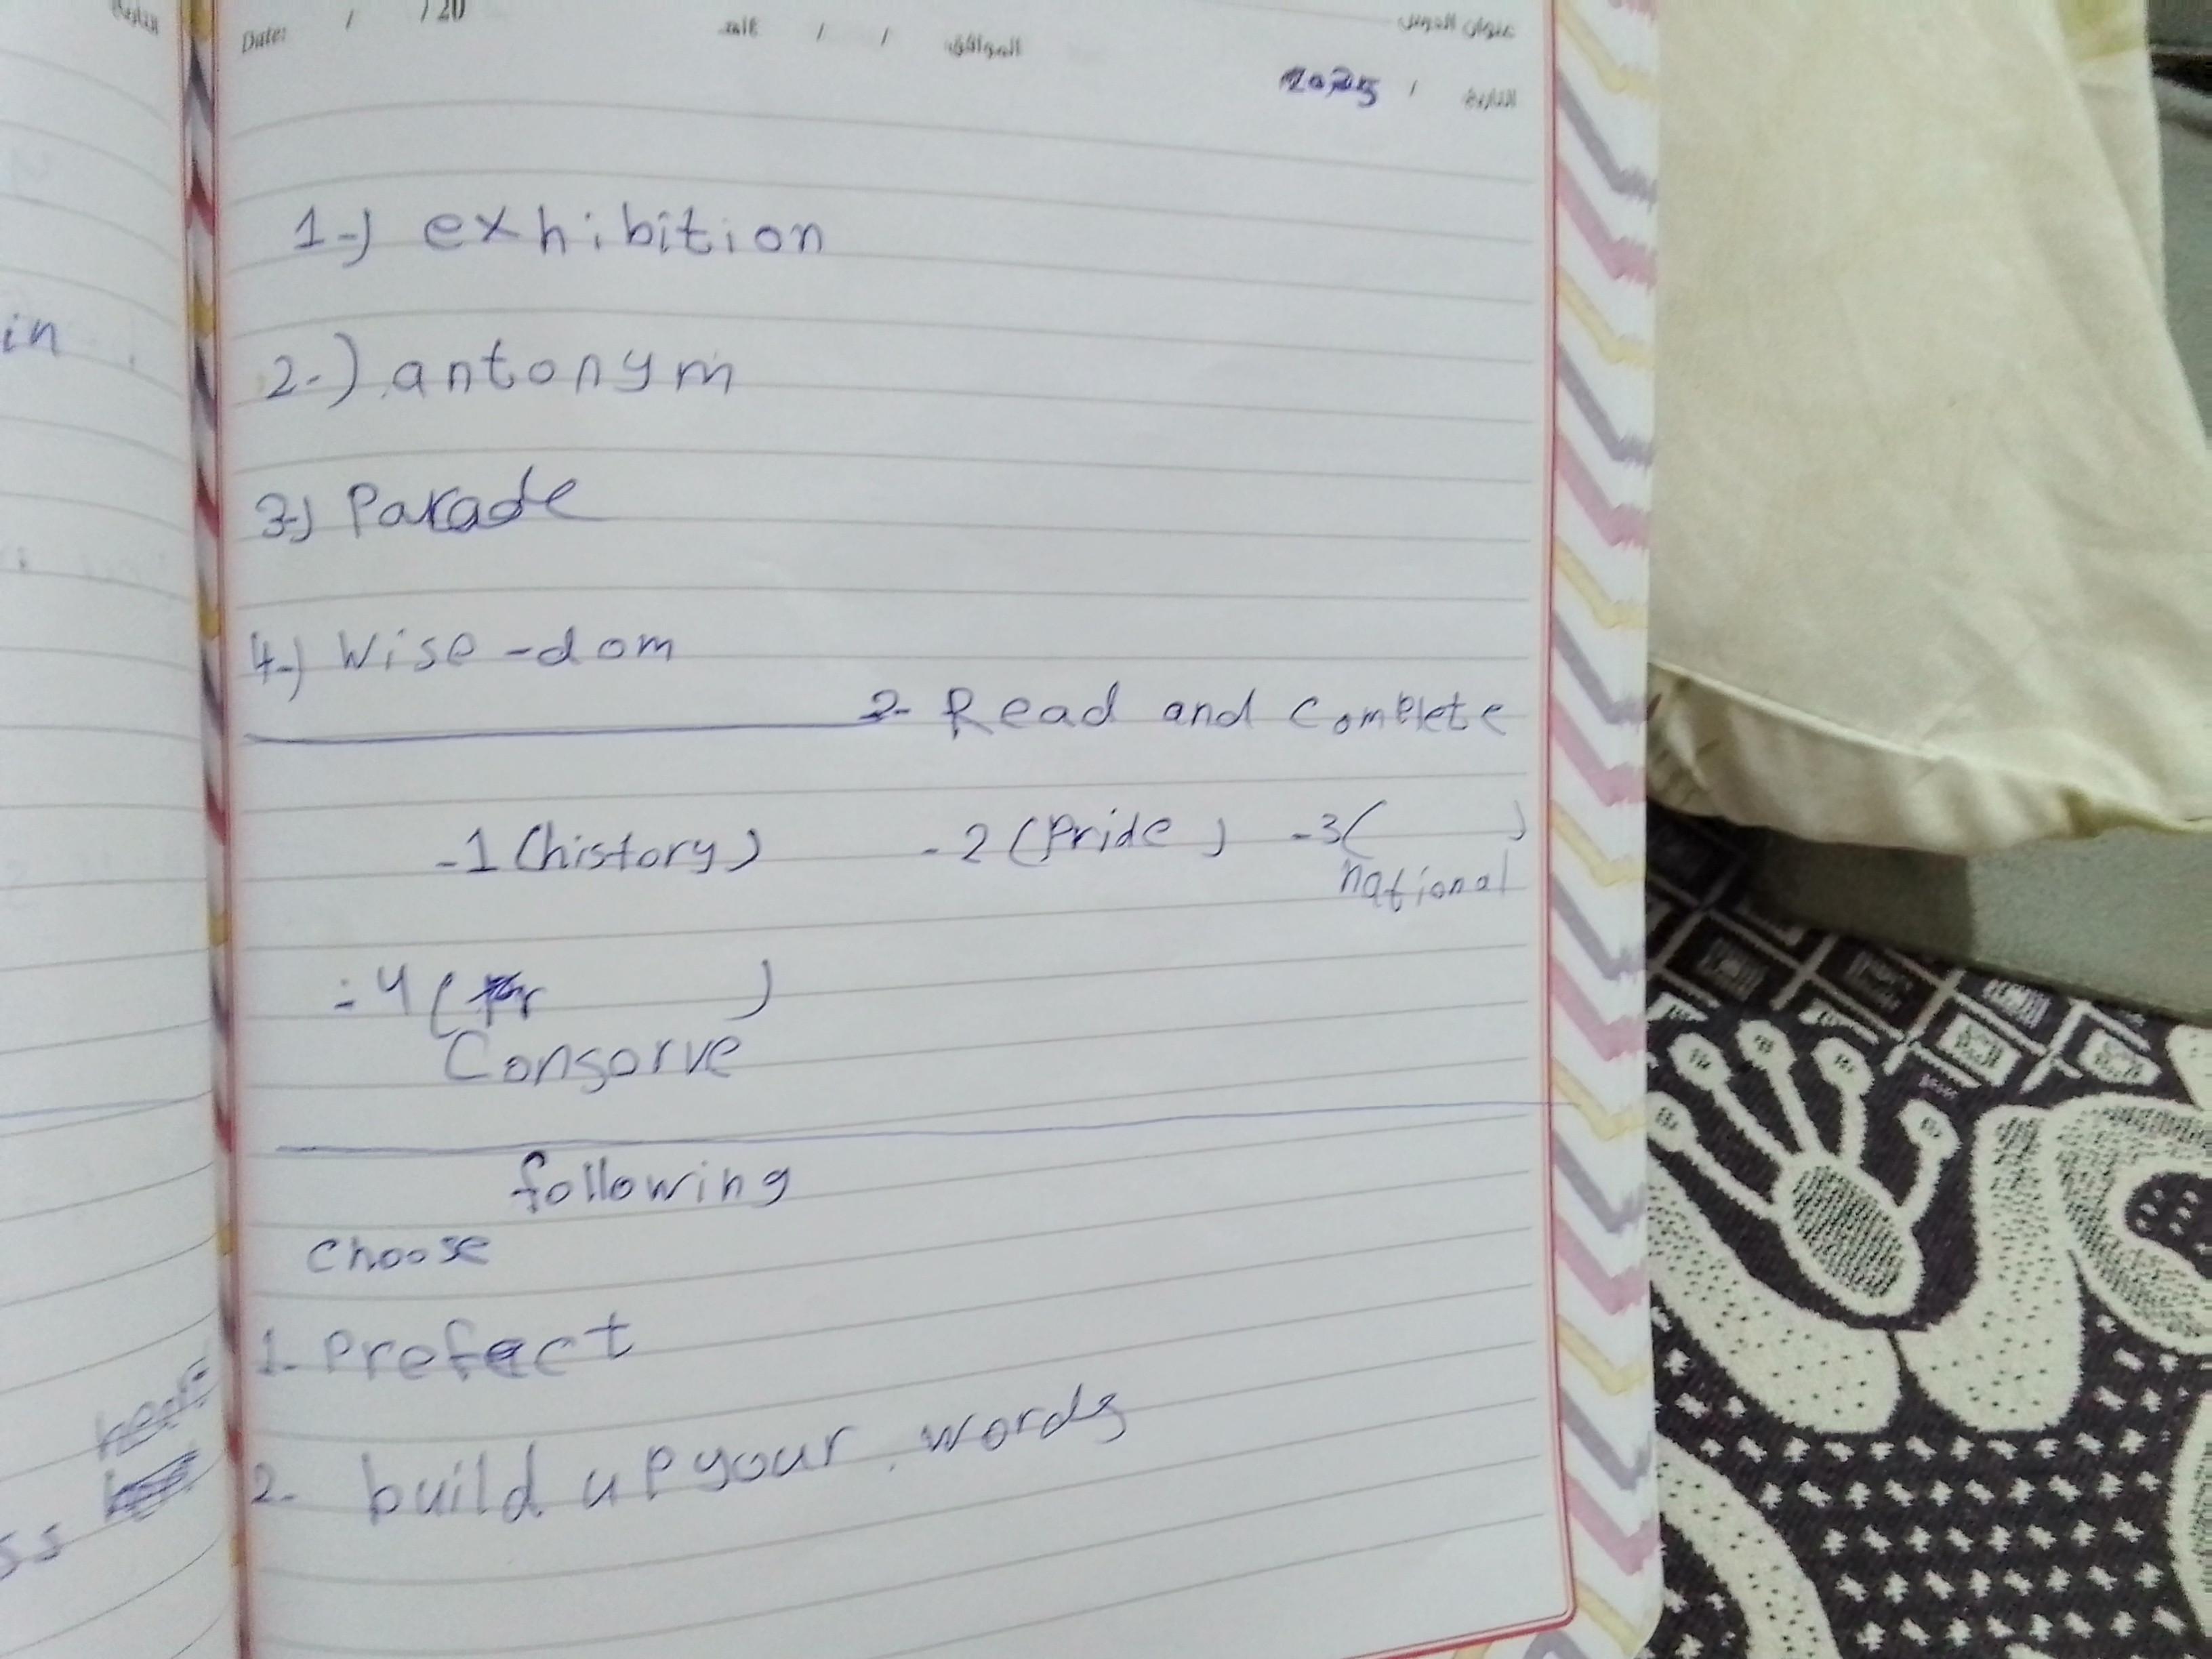 Date: / / 20
الموافق / /
عنوان الدرس
التاريخ / 2025
التاريخ
1-) exhibition
in
2-) antonym
3-) Parade
4-) Wise-dom
2- Read and Complete
-1 (history) -2 (Pride) -3( )
national
-4 ( )
Consorve
following
choose
1- Prefect
2- build up your words
ss